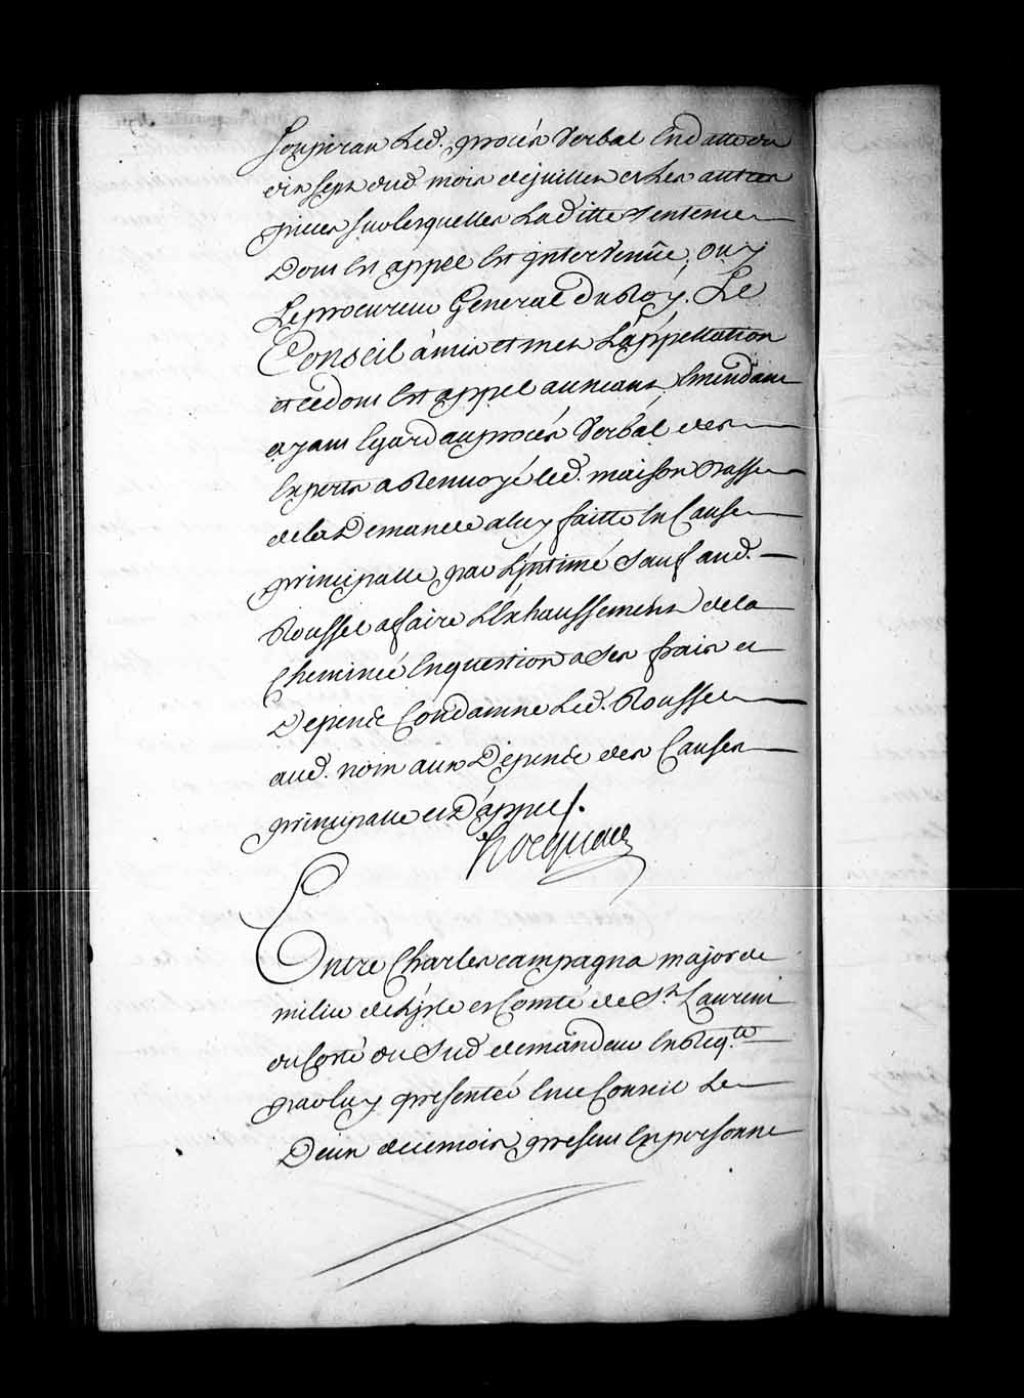 Soupiran Led. procés Verbal En datte du
dix sept dud. mois de juillet et Les autres
pieces sur lesquelles Laditte Sentence
Dont Est appel Est intervenüe, ouy
Le procureur General Du Roy, Le
Conseil à mis et met L'appellation
et ce dont Est appel au neant, Emendant
ayant Egard au procés Verbal des
Experts a Renvoyé led. maison basse
de la Demande a luy faitte En Cause
principalle par L'jntimé Sauf aud.
Roussel a faire L'Exhaussement de la
Cheminée En question a Ses frais et
Depens Condamne Led. Roussel
aud. nom aux Depens des Causes
principalle et D'appel.
hocquart
Entre Charles campagna major de
milice de L'jsle et Comté de St. Laurent
du Costé du Sud demandeur En Req.te
par luy presentée En ce Conseil Le
Deux de ce mois, present En personne